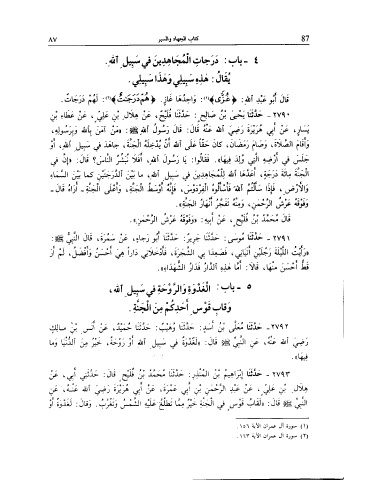 ٨٧ كتاب الجهاد والسير 87
٤ - باب: دَرَجَاتِ الْمُجَاهِدِينَ فِي سَبِيلِ اللهِ.
يُقَالُ: هَذِهِ سَبِيلِي وَهَذَا سَبِيلِي.
قَالَ أَبُو عَبْدِ اللهِ: ﴿غُزًّى﴾(١): وَاحِدُهَا غَازٍ. ﴿هُمْ دَرَجَتٌ﴾(٢): لَهُمْ دَرَجَاتٌ.
٢٧٩٠ - حَدَّثَنَا يَحْيَى بْنُ صَالِحٍ: حَدَّثَنَا فُلَيْحٌ، عَنْ هِلَالِ بْنِ عَلِيٍّ، عَنْ عَطَاءِ بْنِ
يَسَارٍ، عَنْ أَبِي هُرَيْرَةَ رَضِيَ اللهُ عَنْهُ قَالَ: قَالَ رَسُولُ اللهِ ﷺ: «مَنْ آمَنَ بِاللهِ وَبِرَسُولِهِ،
وَأَقَامَ الصَّلَاةَ، وَصَامَ رَمَضَانَ، كَانَ حَقًّا عَلَى اللهِ أَنْ يُدْخِلَهُ الْجَنَّةَ، جَاهَدَ فِي سَبِيلِ اللهِ، أَوْ
جَلَسَ فِي أَرْضِهِ الَّتِي وُلِدَ فِيهَا». فَقَالُوا: يَا رَسُولَ اللهِ، أَفَلَا نُبَشِّرُ النَّاسَ؟ قَالَ: «إِنَّ فِي
الْجَنَّةِ مِائَةَ دَرَجَةٍ، أَعَدَّهَا اللهُ لِلْمُجَاهِدِينَ فِي سَبِيلِ اللهِ، مَا بَيْنَ الدَّرَجَتَيْنِ كَمَا بَيْنَ السَّمَاءِ
وَالْأَرْضِ، فَإِذَا سَأَلْتُمُ اللهَ فَاسْأَلُوهُ الْفِرْدَوْسَ، فَإِنَّهُ أَوْسَطُ الْجَنَّةِ، وَأَعْلَى الْجَنَّةِ - أُرَاهُ قَالَ -
وَفَوْقَهُ عَرْشُ الرَّحْمَنِ، وَمِنْهُ تَفَجَّرُ أَنْهَارُ الْجَنَّةِ».
قَالَ مُحَمَّدُ بْنُ فُلَيْحٍ، عَنْ أَبِيهِ: «وَفَوْقَهُ عَرْشُ الرَّحْمَنِ».
٢٧٩١ - حَدَّثَنَا مُوسَى: حَدَّثَنَا جَرِيرٌ: حَدَّثَنَا أَبُو رَجَاءٍ، عَنْ سَمُرَةَ، قَالَ النَّبِيُّ ﷺ:
«رَأَيْتُ اللَّيْلَةَ رَجُلَيْنِ أَتَيَانِي، فَصَعِدَا بِي الشَّجَرَةَ، فَأَدْخَلَانِي دَاراً هِيَ أَحْسَنُ وَأَفْضَلُ، لَمْ أَرَ
قَطُّ أَحْسَنَ مِنْهَا، قَالَا: أَمَّا هَذِهِ الدَّارُ فَدَارُ الشُّهَدَاءِ».
٥ - باب: الْغَدْوَةِ وَالرَّوْحَةِ فِي سَبِيلِ اللهِ،
وَقَابِ قَوْسِ أَحَدِكُمْ مِنَ الْجَنَّةِ.
٢٧٩٢ - حَدَّثَنَا مُعَلَّى بْنُ أَسَدٍ: حَدَّثَنَا وُهَيْبٌ: حَدَّثَنَا حُمَيْدٌ، عَنْ أَنَسِ بْنِ مَالِكٍ
رَضِيَ اللهُ عَنْهُ، عَنِ النَّبِيِّ ﷺ قَالَ: «لَغَدْوَةٌ فِي سَبِيلِ اللهِ أَوْ رَوْحَةٌ، خَيْرٌ مِنَ الدُّنْيَا وَمَا
فِيهَا».
٢٧٩٣ - حَدَّثَنَا إِبْرَاهِيمُ بْنُ الْمُنْذِرِ: حَدَّثَنَا مُحَمَّدُ بْنُ فُلَيْحٍ قَالَ: حَدَّثَنِي أَبِي، عَنْ
هِلَالِ بْنِ عَلِيٍّ، عَنْ عَبْدِ الرَّحْمَنِ بْنِ أَبِي عَمْرَةَ، عَنْ أَبِي هُرَيْرَةَ رَضِيَ اللهُ عَنْهُ، عَنِ
النَّبِيِّ ﷺ قَالَ: «لَقَابُ قَوْسٍ فِي الْجَنَّةِ خَيْرٌ مِمَّا تَطْلُعُ عَلَيْهِ الشَّمْسُ وَتَغْرُبُ. وَقَالَ: لَغَدْوَةٌ أَوْ
(١) سورة آل عمران الآية ١٥٦.
(٢) سورة آل عمران الآية ١٦٣.